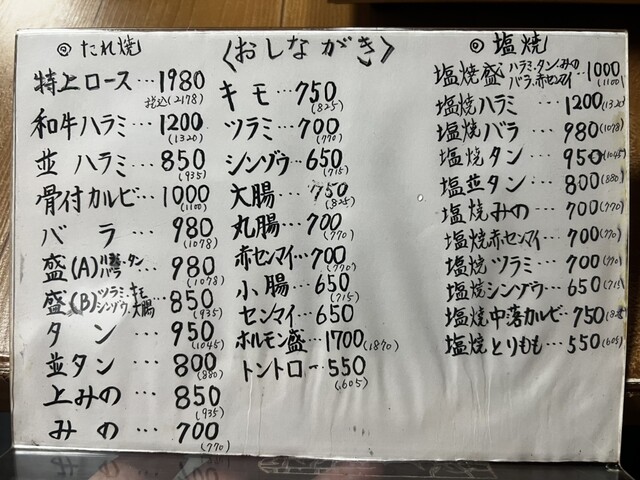 ◎たれ焼
特上ロース…1980
税込(2178)
和牛ハラミ…1200
(1320)
並ハラミ…850
(935)
骨付カルビ…1000
(1100)
バラ…980
(1078)
盛(A)タン…980
(1078)
盛(B)ツラミ・キモ シンゾウ・大腸…850
(935)
タン…950
(1045)
並タン…800
(880)
上みの…850
(935)
みの…700
(770)
〈おしながき〉
キモ…750
(825)
ツラミ…700
(770)
シンゾウ…650
(715)
大腸…750
(825)
丸腸…700
(770)
赤センマイ…700
(770)
小腸…650
(715)
センマイ…650
ホルモン盛…1700
(1870)
トントロ…550
(605)
◎塩焼
塩焼盛 ハラミ・タン・みの バラ・赤センマイ…1000
(1100)
塩焼ハラミ…1200(1320)
塩焼バラ…980(1078)
塩焼タン…950(1045)
塩並タン…800(880)
塩焼みの…700(770)
塩焼赤センマイ…700(770)
塩焼ツラミ…700(770)
塩焼シンゾウ…650(715)
塩焼中落カルビ…750
塩焼とりもも…550(605)